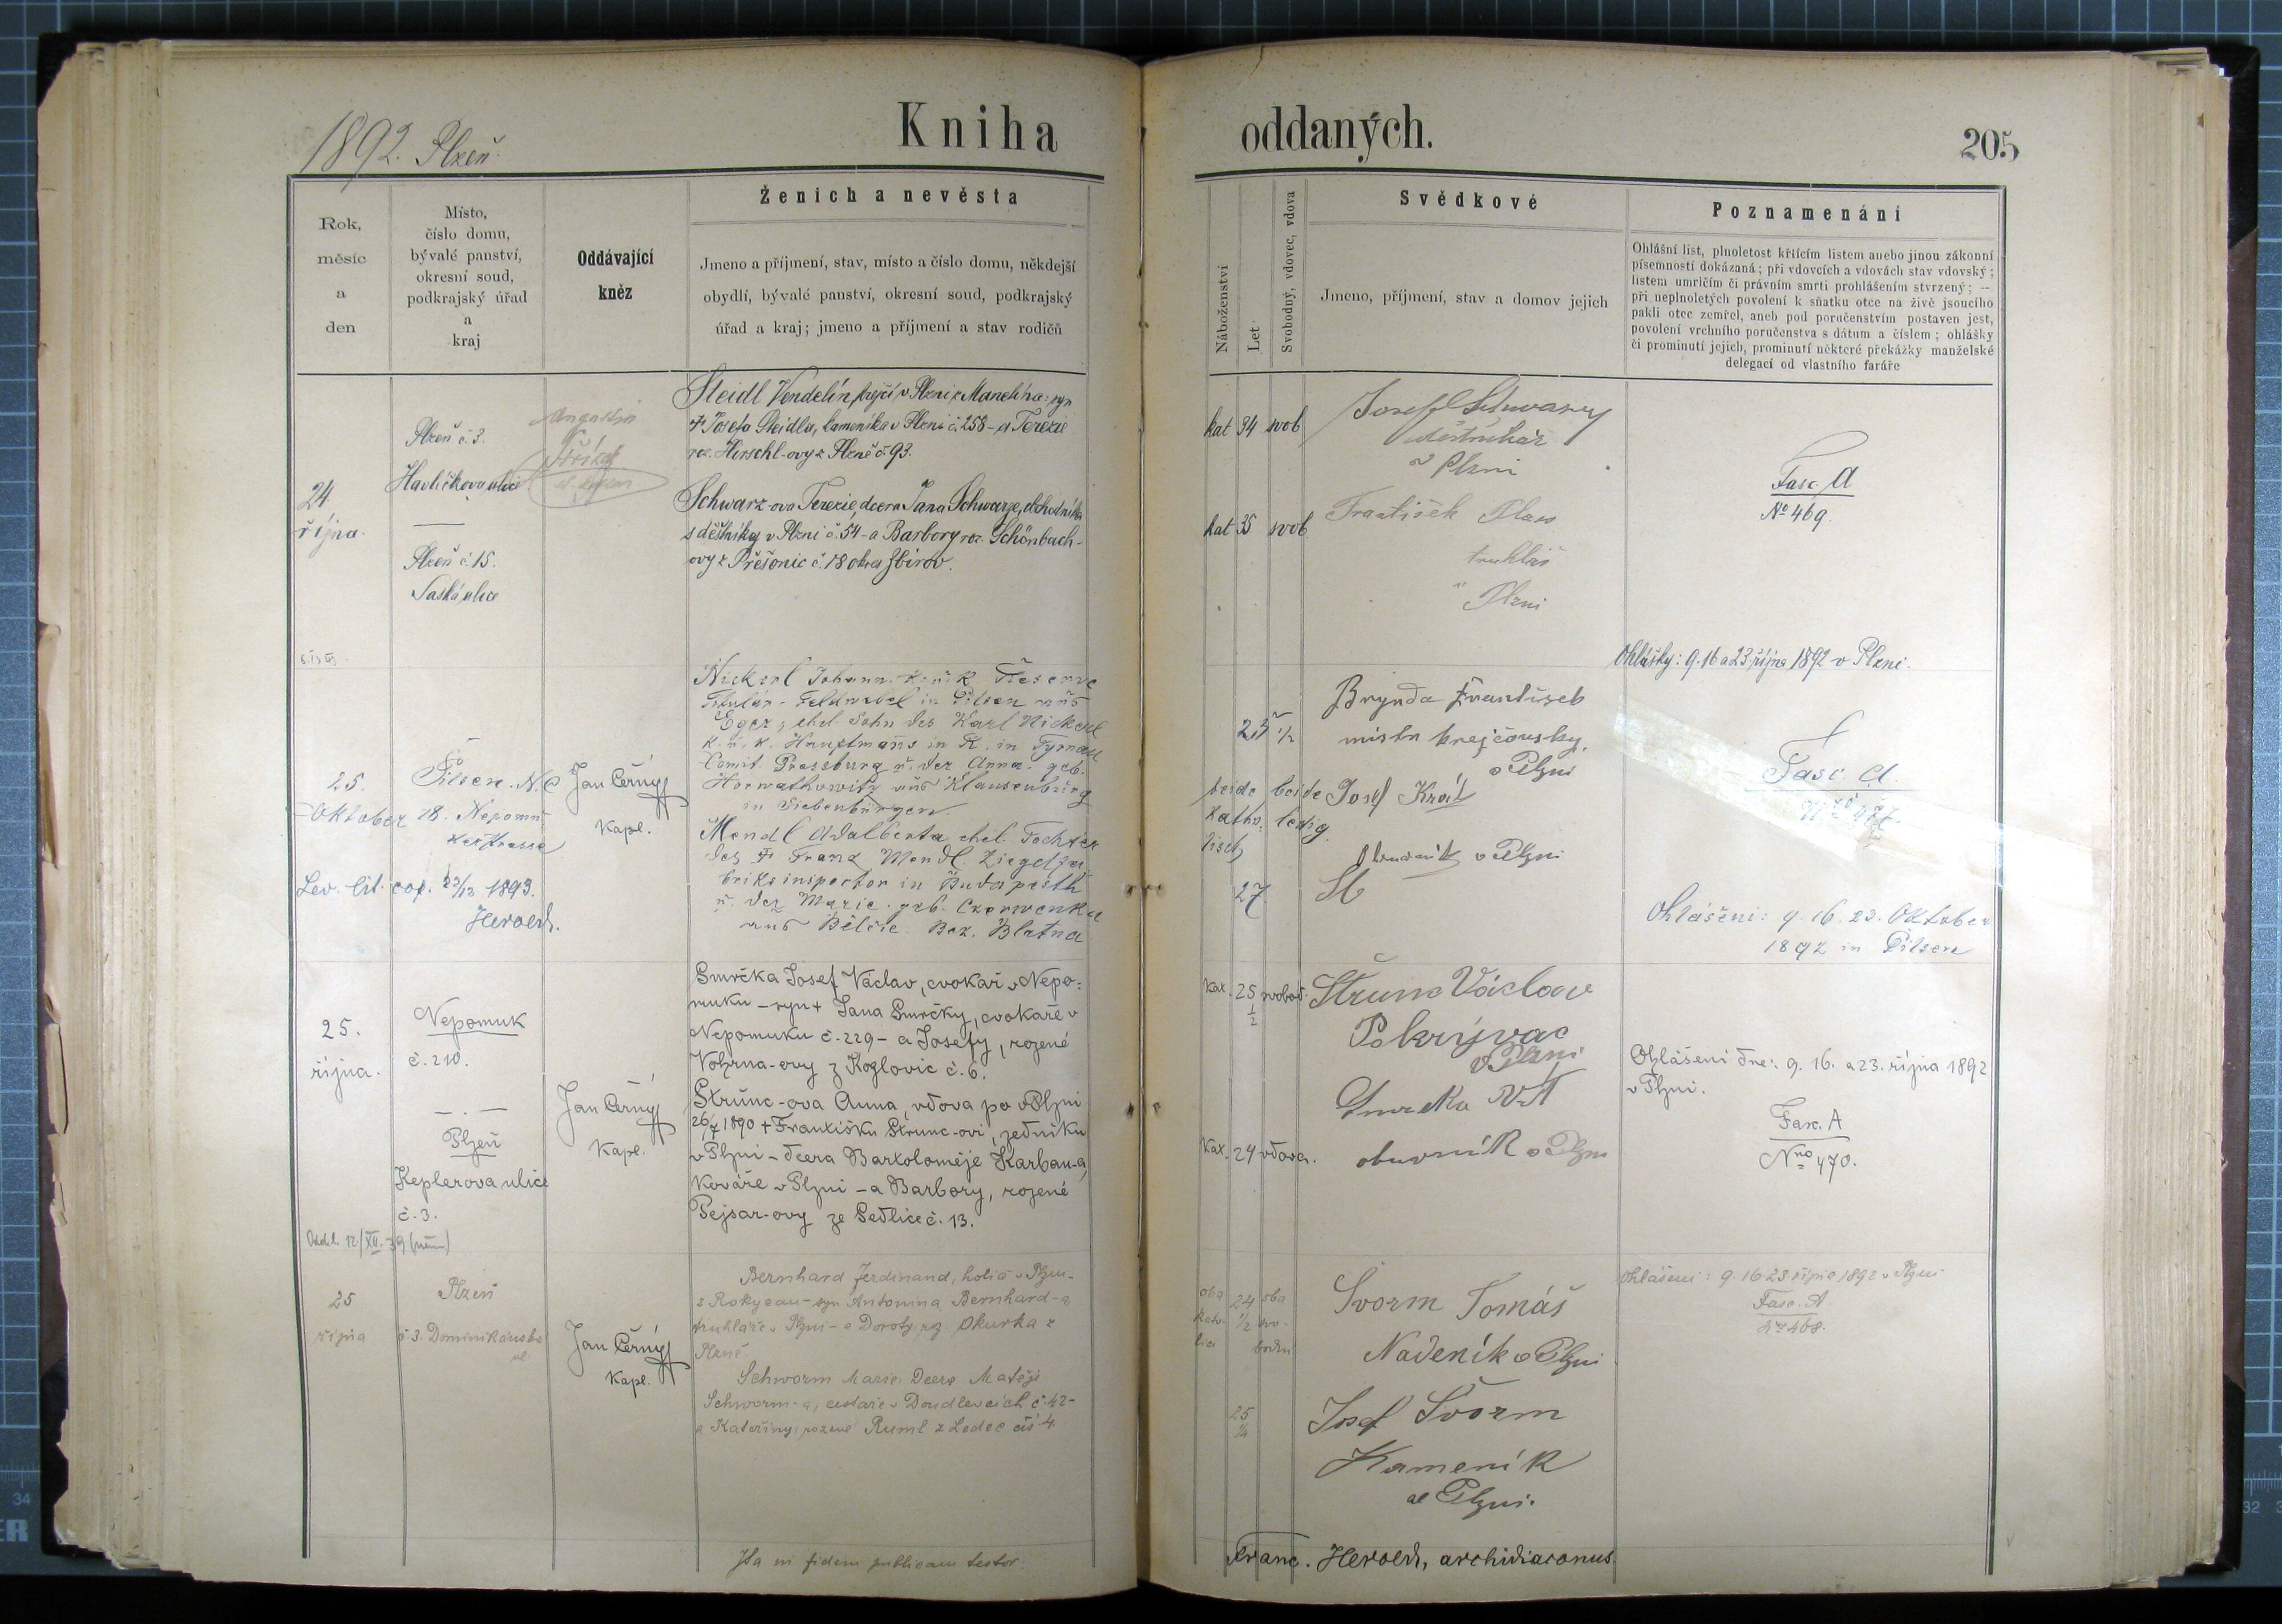 1892. Plzeň.
Kniha
oddaných.
205
Rok,
měsíc
a
den
Místo,
číslo domu,
bývalé panství,
okresní soud,
podkrajský úřad
a
kraj
Oddávající
kněz
Ženich a nevěsta
Jmeno a příjmení, stav, místo a číslo domu, někdejší
obydlí, bývalé panství, okresní soud, podkrajský
úřad a kraj; jmeno a příjmení a stav rodičů
Náboženství
Let
Svobodný, vdovec, vdova
Svědkové
Jmeno, příjmení, stav a domov jejich
Poznamenání
Ohlášní list, plnoletost křticím listem anebo jinou zákonní
písemností dokázaná; při vdovcích a vdovách stav vdovský;
listem umrlčím či právním smrti prohlášením stvrzený; —
při neplnoletých povolení k sňatku otce na živě jsoucího
pakli otec zemřel, aneb pod poručenstvím postaven jest,
povolení vrchního poručenstva s dátum a číslem; ohlášky
či prominutí jejich, prominutí některé překážky manželské
delegací od vlastního faráře
24
října.
Plzeň č. 3.
Havlíčkova ulice
Plzeň č. 15.
Saská ulice
Steidl Vendelín, krejčí v Plzni z Manetína: syn
† Josefa Steidla, kameníka v Plzni č. 258 - a Terezie
roz. Hirschl-ovy z Plzně č. 93.
Schwarz-ova Terezie, dcera Jana Schwarze, obchodníka
s deštníky v Plzni č. 54 - a Barbory roz. Schönbach-
ovy z Přešonic č. 18 okres Zbirov.
kat 34 svob
kat 35 svob
Josef Schwarz
deštníkář
v Plzni
František
truhlář
v Plzni
Fasc. A
No 469.
Ohlášky: 9. 16 a 23 října 1892 v Plzni.
25.
Oktober
Pilsen. N. C
18. Nepomu-
kerstrasse
Lev. lit. cop. 23/12 1893.
Herold.
Jan Černý
kapl.
Nickerl Johann. k. u. k. Reserve
Titulär-Feldwebel in Pilsen aus
Eger, ehel. Sohn des Karl Nickerl
k. u. k. Hauptmanns in R. in Tyrnau
Comit. Pressburg u. der Anna. geb.
Horwathowitz aus Klausenburg
in Siebenbürgen.
Mendl Adalberta ehel. Tochter
des † Franz Mendl Ziegelfa-
briksinspector in Budapesth
u. der Marie. geb. Czerwenka
aus Bělčic. Bez. Blatna
25 1/2
beide beide
katho- ledig
lisch
27.
Brynda František
mistr krejčovský
v Plzni
Josef Král
v Plzni
Fasc. A.
No 477.
Ohlášeni: 9. 16. 23. Oktober
1892 in Pilsen
25.
října.
Nepomuk
č. 210.
Plzeň
Keplerova ulice
č. 3.
Jan Černý
kapl.
Smrčka Josef Václav, cvokař v Nepo:
muku - syn † Jana Smrčky, cvokaře v
Nepomuku č. 229 - a Josefy, rozené
Vohrna-ovy z Kozlovic č. 6.
Strunc-ova Anna, vdova po v Plzni
26/7 1890 † Františku Strunc-ovi, zedníku
v Plzni - dcera Bartoloměje Karban-a,
kováře v Plzni - a Barbory, rozené
Pejsar-ovy ze Sedlice č. 13.
kat. 25 1/2 svobod.
kat. 24 vdova.
Štrunc Václav
Pokrývač
v Plzni
Smrčka
obuvník v Plzni
Ohlášeni dne: 9. 16. a 23. října 1892
v Plzni.
Fasc. A
Nro 470.
25
října
Plzeň
č 3. Dominikánská
ul.
Jan Černý
kapl.
Bernhard Ferdinand, holič v Plzni-
z Rokycan - syn Antonína Bernhard-a
truhláře v Plzni - a Doroty, roz. Okurka z
Plzně
Schworm Marie, dcera Matěje
Schworm-a, cestáře v Doudlevcích č. 42-
a Kateřiny, rozené Ruml z Ledec čís. 4
oba 24 oba
kato- 1/2 svo-
lici bodni
25
1/4
Švorm Tomáš
Nádeník v Plzni
Josef Švorm
Kameník
v Plzni.
Ohlášeni: 9. 16 23 října 1892 v Plzni
Fasc. A
No 468.
Ita in fidem publicam testor:
Franc. Herold, archidiaconus.